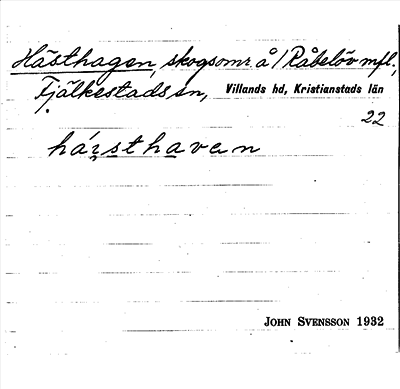 Hästhagen, skogsomr. å 1 Råbelöv mfl.,
Fjälkestads sn, Villands hd, Kristianstads län
22
há̱rsthavan
JOHN SVENSSON 1932